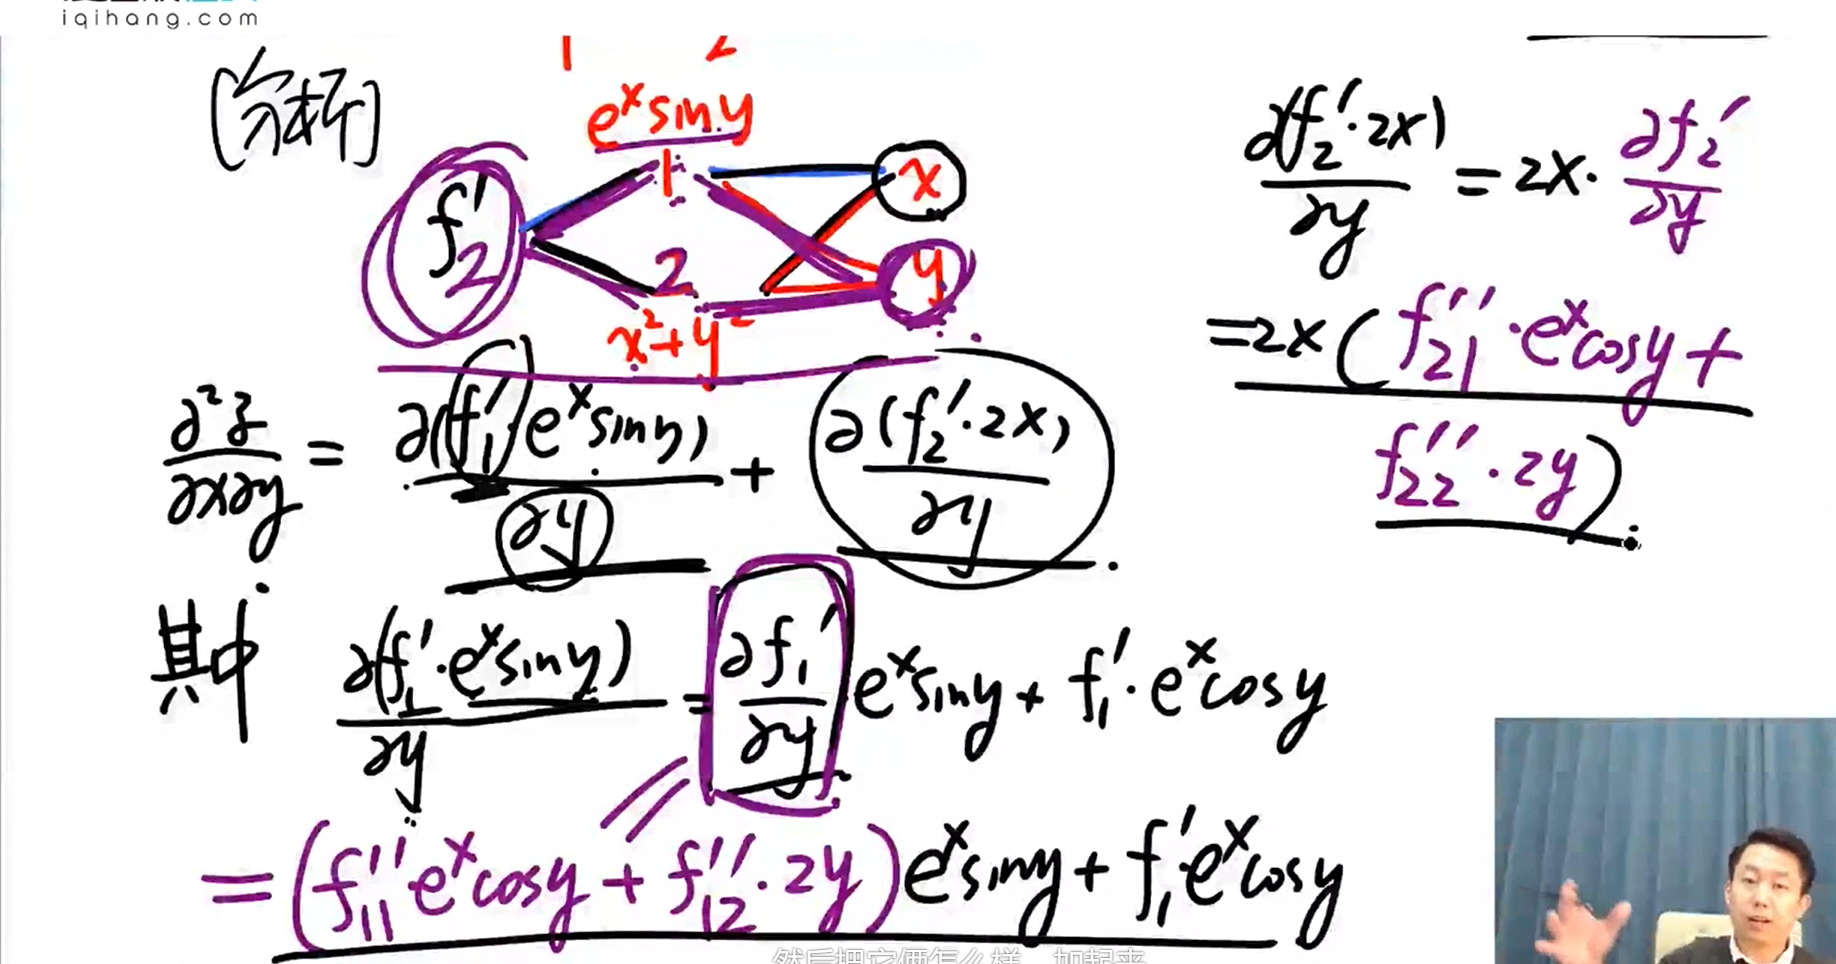 iqihang.com
1 2
[分析]
eˣsiny
1
x
f₂′
2
y
x²+y²
∂²z/∂x∂y = ∂(f₁′)eˣsiny)/∂y + ∂(f₂′·2x)/∂y .
其中 ∂(f₁′·eˣsiny)/∂y = ∂f₁′/∂y eˣsiny + f₁′·eˣcosy
= (f₁₁″eˣcosy + f₁₂″·2y)eˣsiny + f₁′eˣcosy
∂(f₂′·2x)/∂y = 2x·∂f₂′/∂y
=2x(f₂₁″·eˣcosy+
f₂₂″·2y).
然后把它俩怎么样 加起来